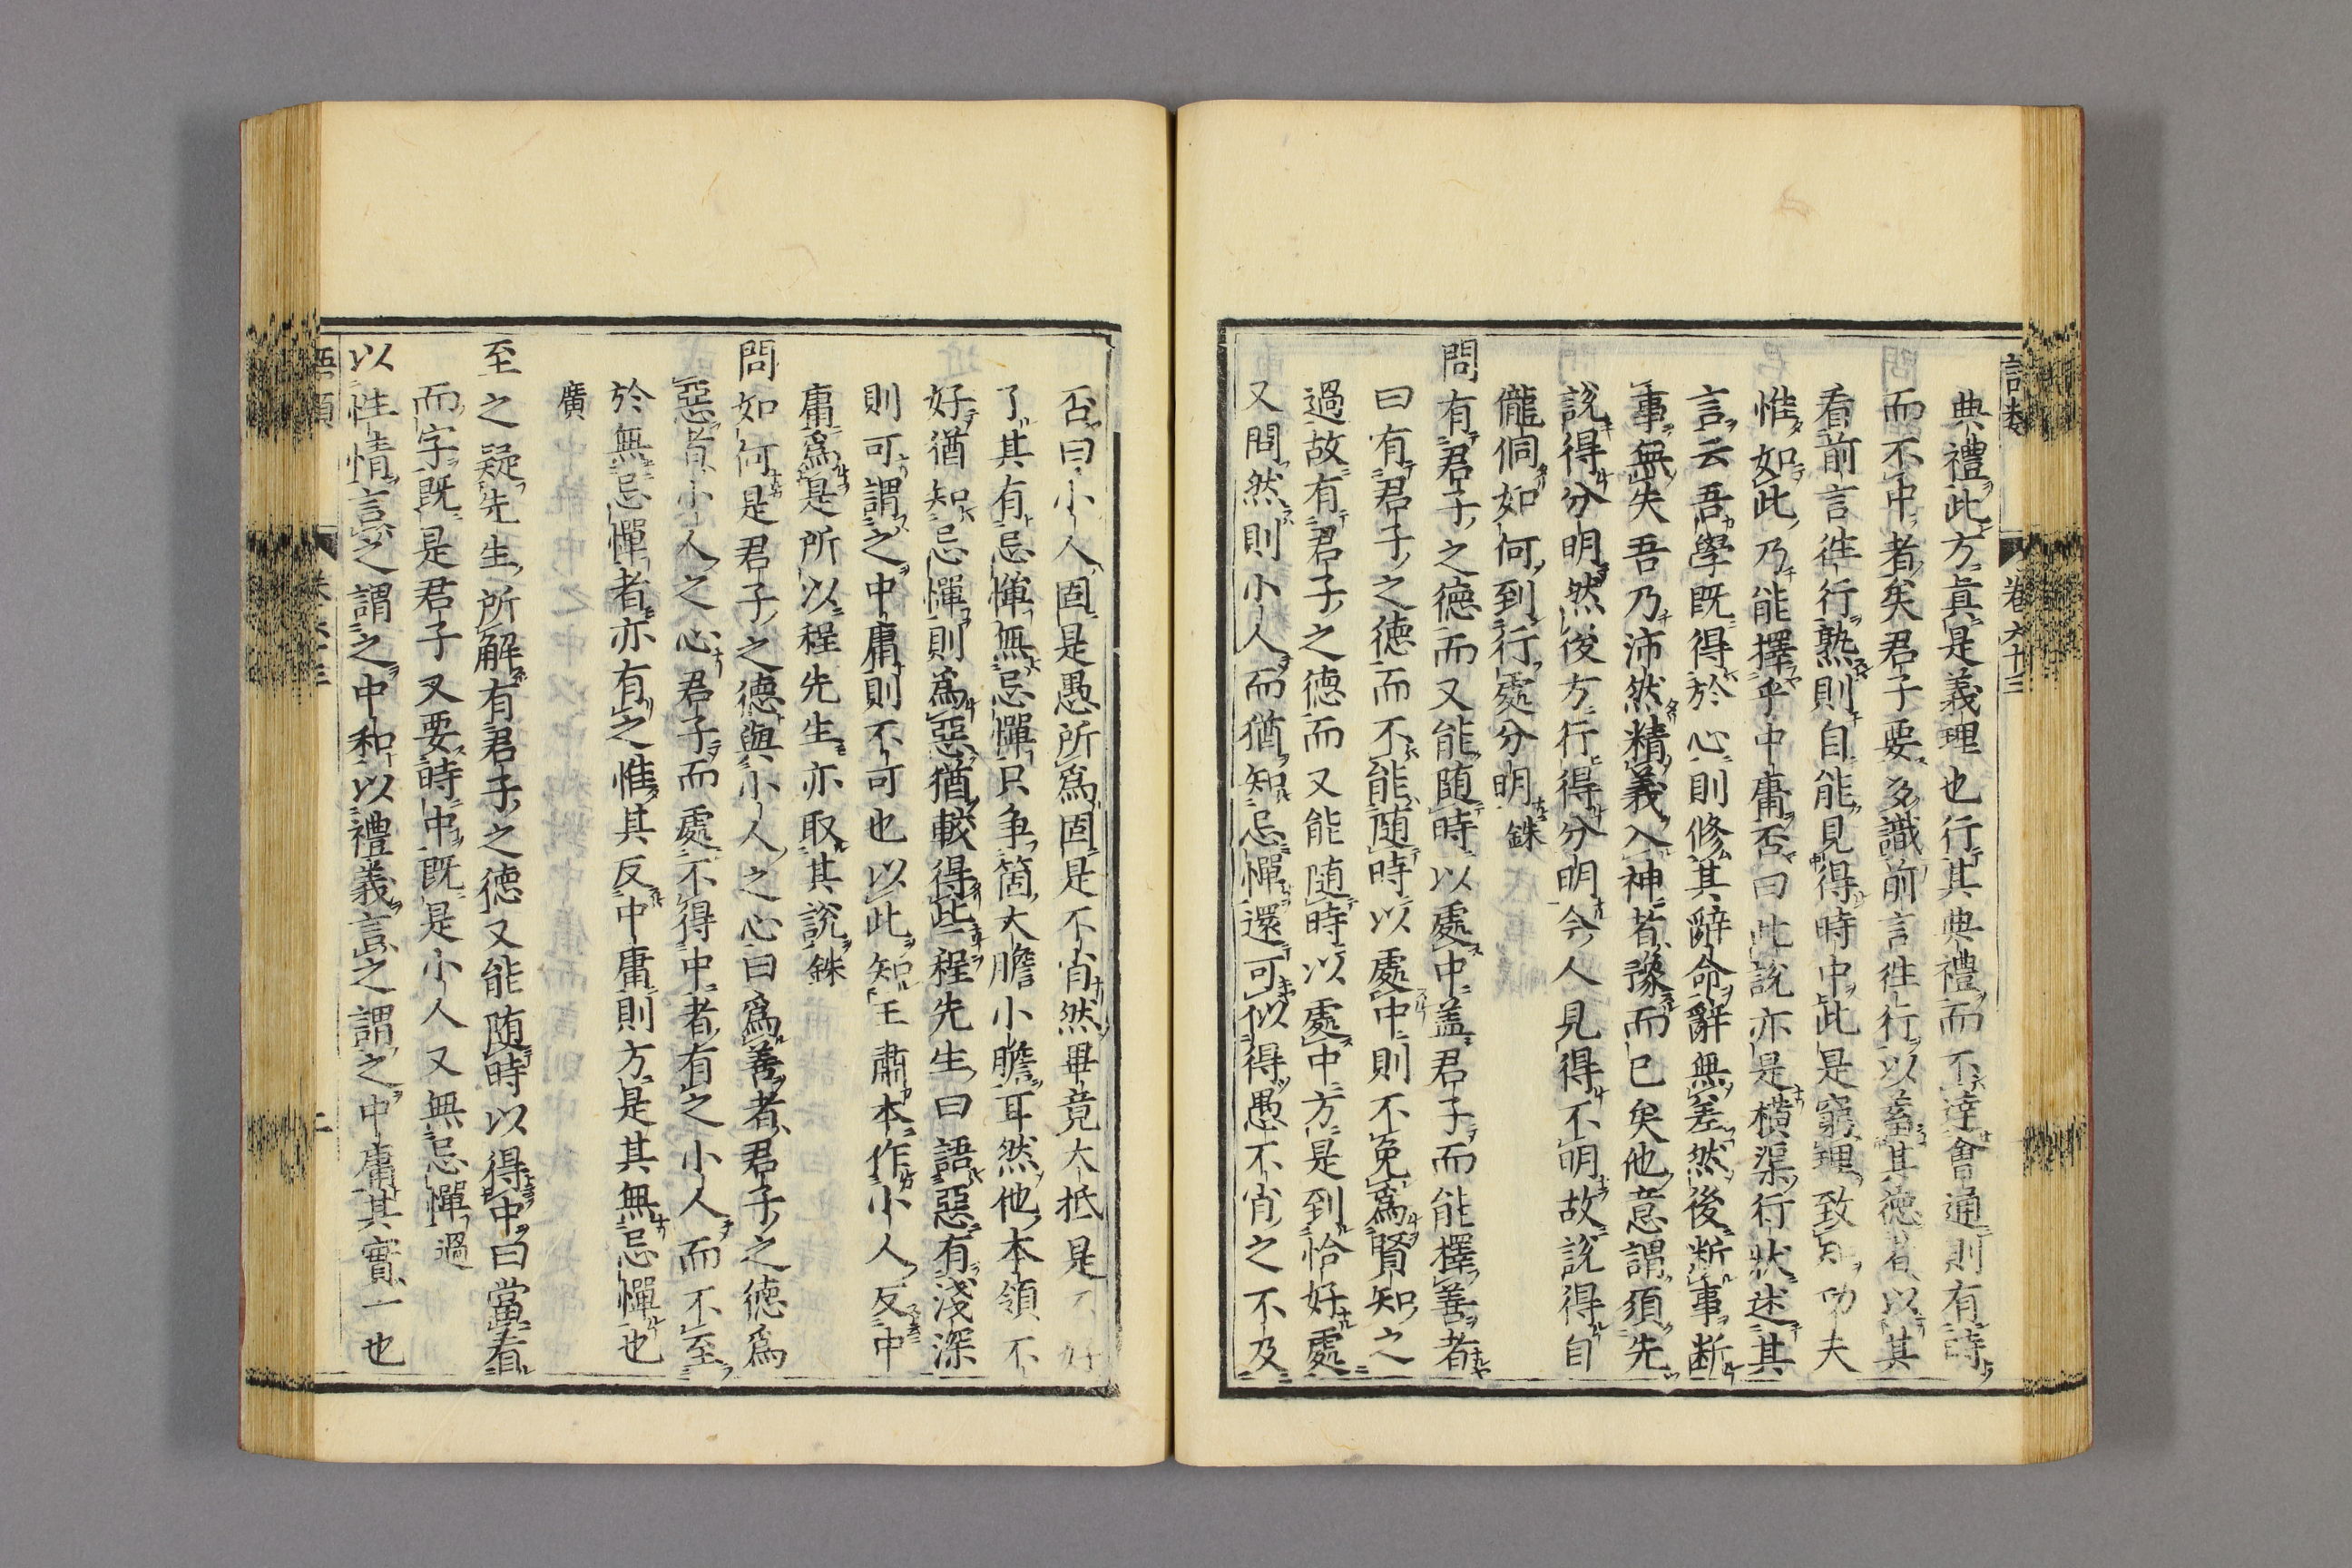 典禮此方眞是義理也行其典禮而不達會通則有時
而不中者矣君子要多識前言徃行以蓄其德者以其
看前言徃行熟則自能見得時中此是窮理致知功夫
惟如此乃能擇乎中庸否曰此說亦是橫渠行狀述其
言云吾學既得於心則修其辭命辭無差然後斷事斷
事無失吾乃沛然精義入神者豫而已矣他意謂須先
說得分明然後方行得分明今人見得不明故說得自
儱侗如何到行處分明銖
問有君子之德而又能随時以處中盖君子而能擇善者
曰有君子之德而不能随時以處中則不免爲賢知之
過故有君子之德而又能随時以處中方是到恰好處
又問然則小人而猶知忌憚還可似得愚不肖之不及
否曰小人固是愚所爲固是不肖然畢竟大抵是不好
了其有忌憚無忌憚只争箇大膽小膽耳然他本領不
好猶知忌憚則爲惡猶較得些程先生曰語惡有淺深
則可謂之中庸則不可也以此知王肅本作小人反中
庸爲是所以程先生亦取其說銖
問如何是君子之德與小人之心曰爲善者君子之德爲
惡者小人之心君子而處不得中者有之小人而不至
於無忌憚者亦有之惟其反中庸則方是其無忌憚也
廣
至之疑先生所解有君子之德又能随時以得中曰當看
而字既是君子又要時中既是小人又無忌憚過
以性情言之謂之中和以禮義言之謂之中庸其實一也
卷六十三
二